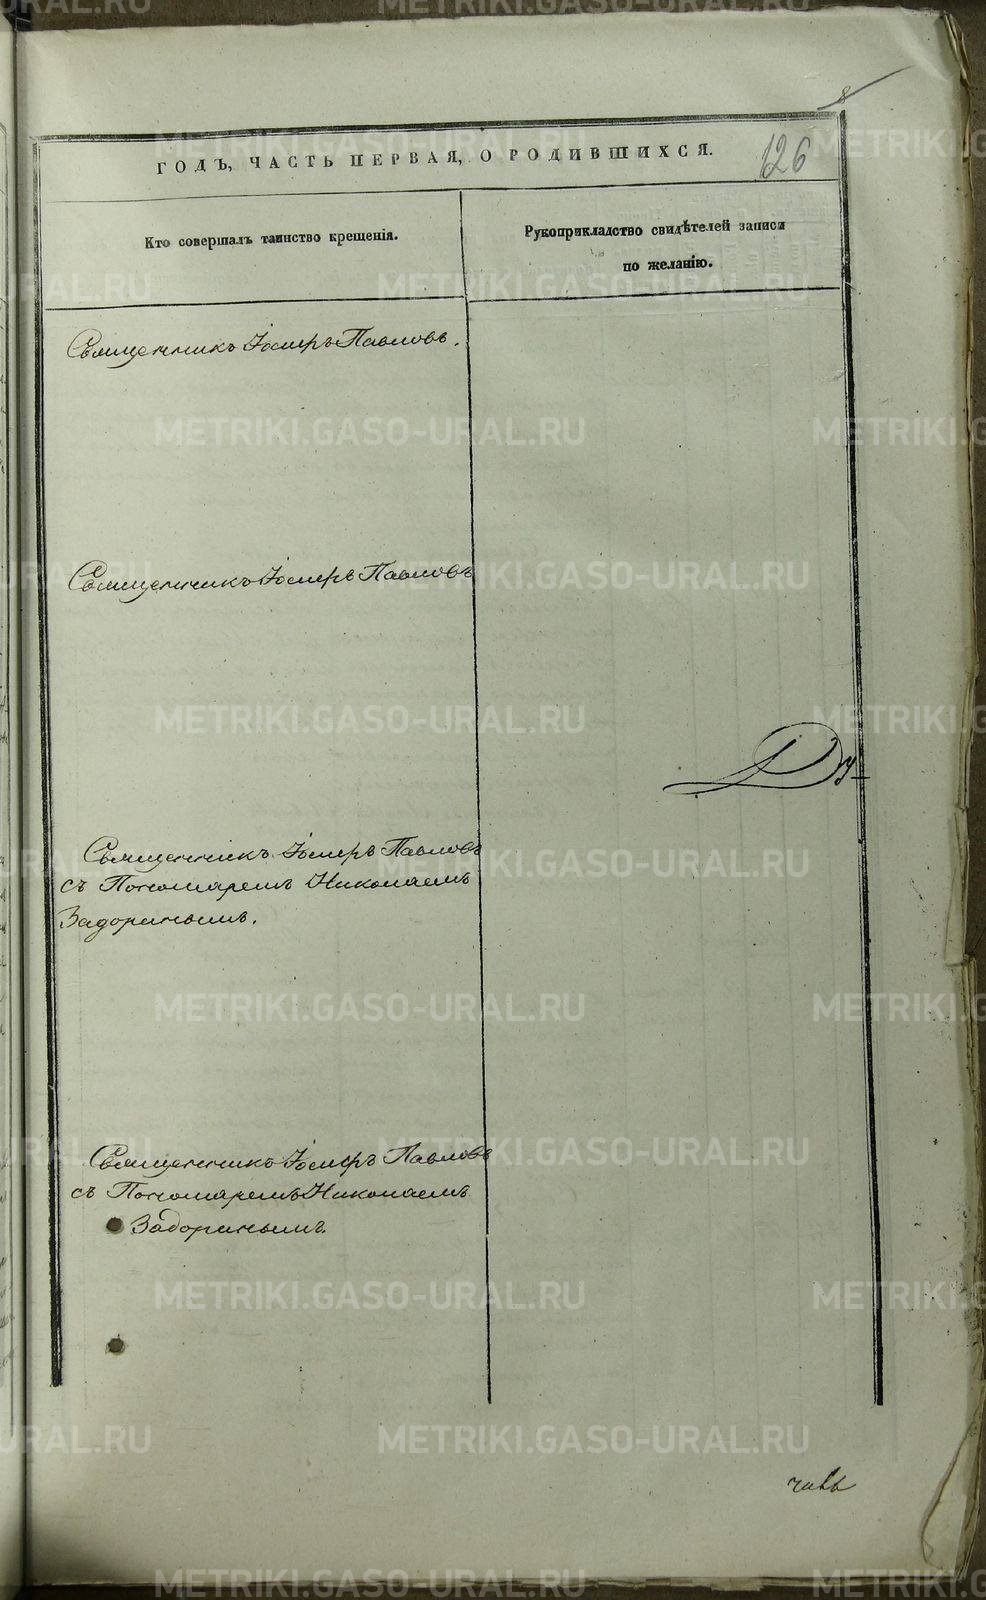 8
126
ГОДЪ, ЧАСТЬ ПЕРВАЯ, О РОДИВШИХСЯ.
Кто совершалъ таинство крещенія.
Рукоприкладство свидѣтелей записи
по желанію.
Священникъ Павловъ.
Священникъ Павловъ
Священникъ Павловъ
съ Пономаремъ Николаемъ
Задоринымъ.
Священникъ Павловъ
съ Пономаремъ Николаемъ
Задоринымъ.
METRIKI.GASO-URAL.RU